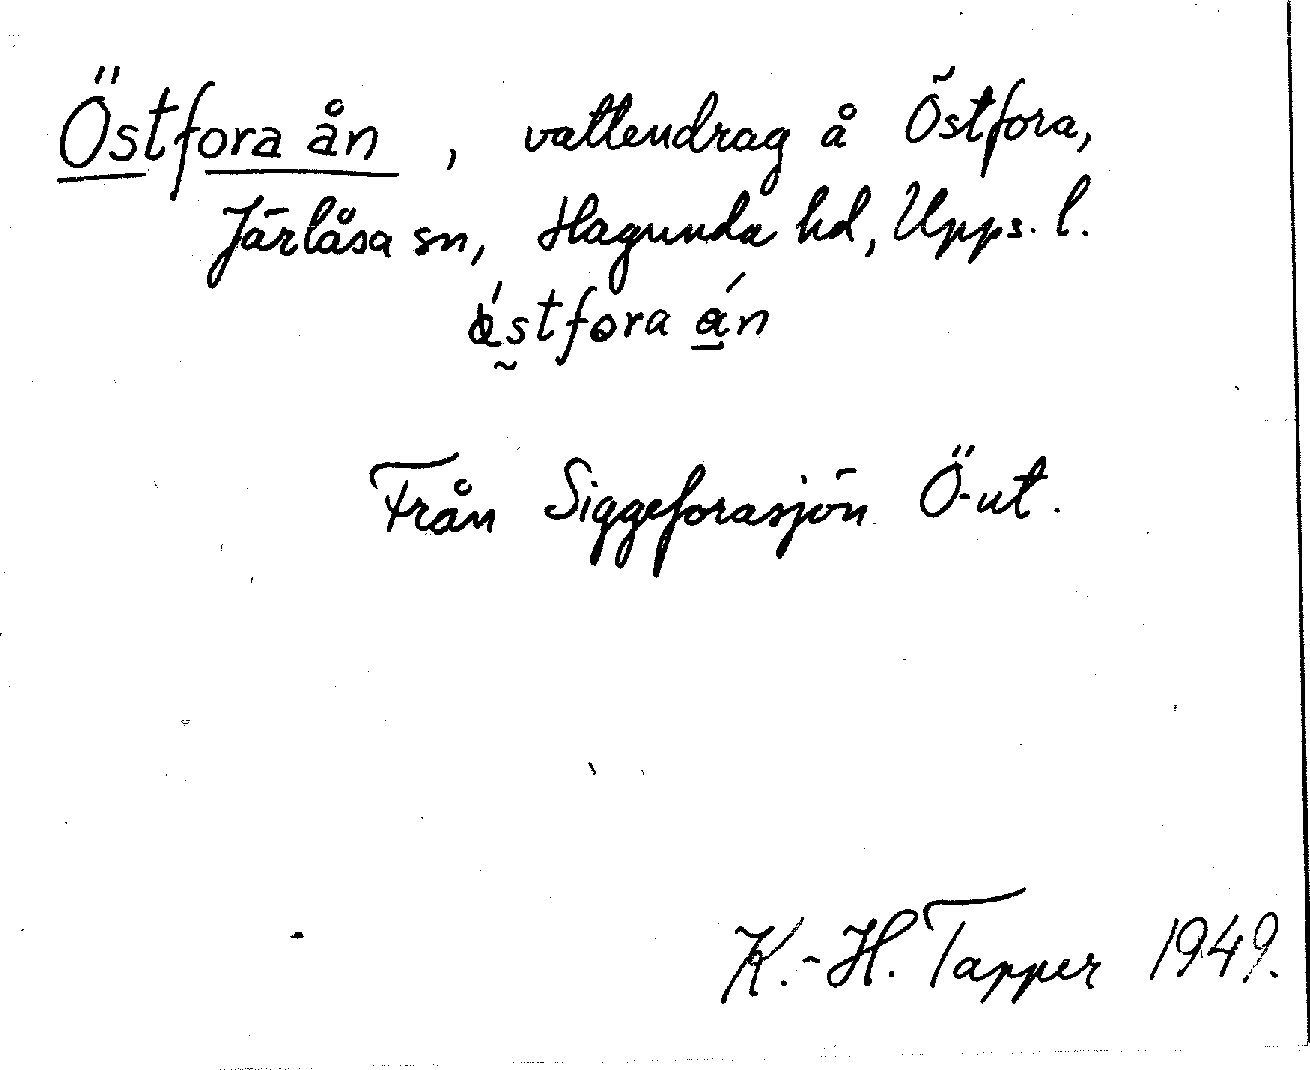 Östfora ån, vattendrag å Östfora,
Järlåsa sn, Hagunda hd, Upps. l.
stfora án
Från Siggeforasjön Ö-ut.
K.-H. Tapper 1949.